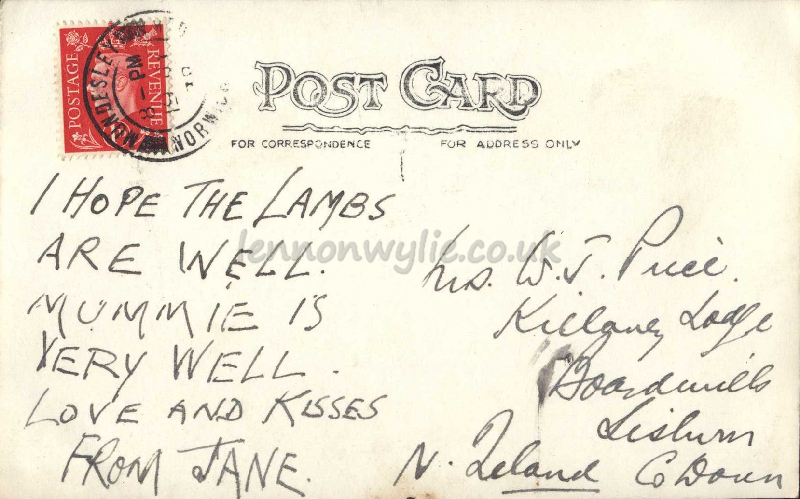 POSTAGE
REVENUE
MUNDESLEY
NORWICH
8 - PM
51
POST CARD
FOR CORRESPONDENCE
FOR ADDRESS ONLY
I HOPE THE LAMBS
ARE WELL.
MUMMIE IS
VERY WELL.
LOVE AND KISSES
FROM JANE.
lennonwylie.co.uk
Mrs. W. J. Price.
Killaney Lodge
Boardmills
Lisburn
N. Ireland Co Down